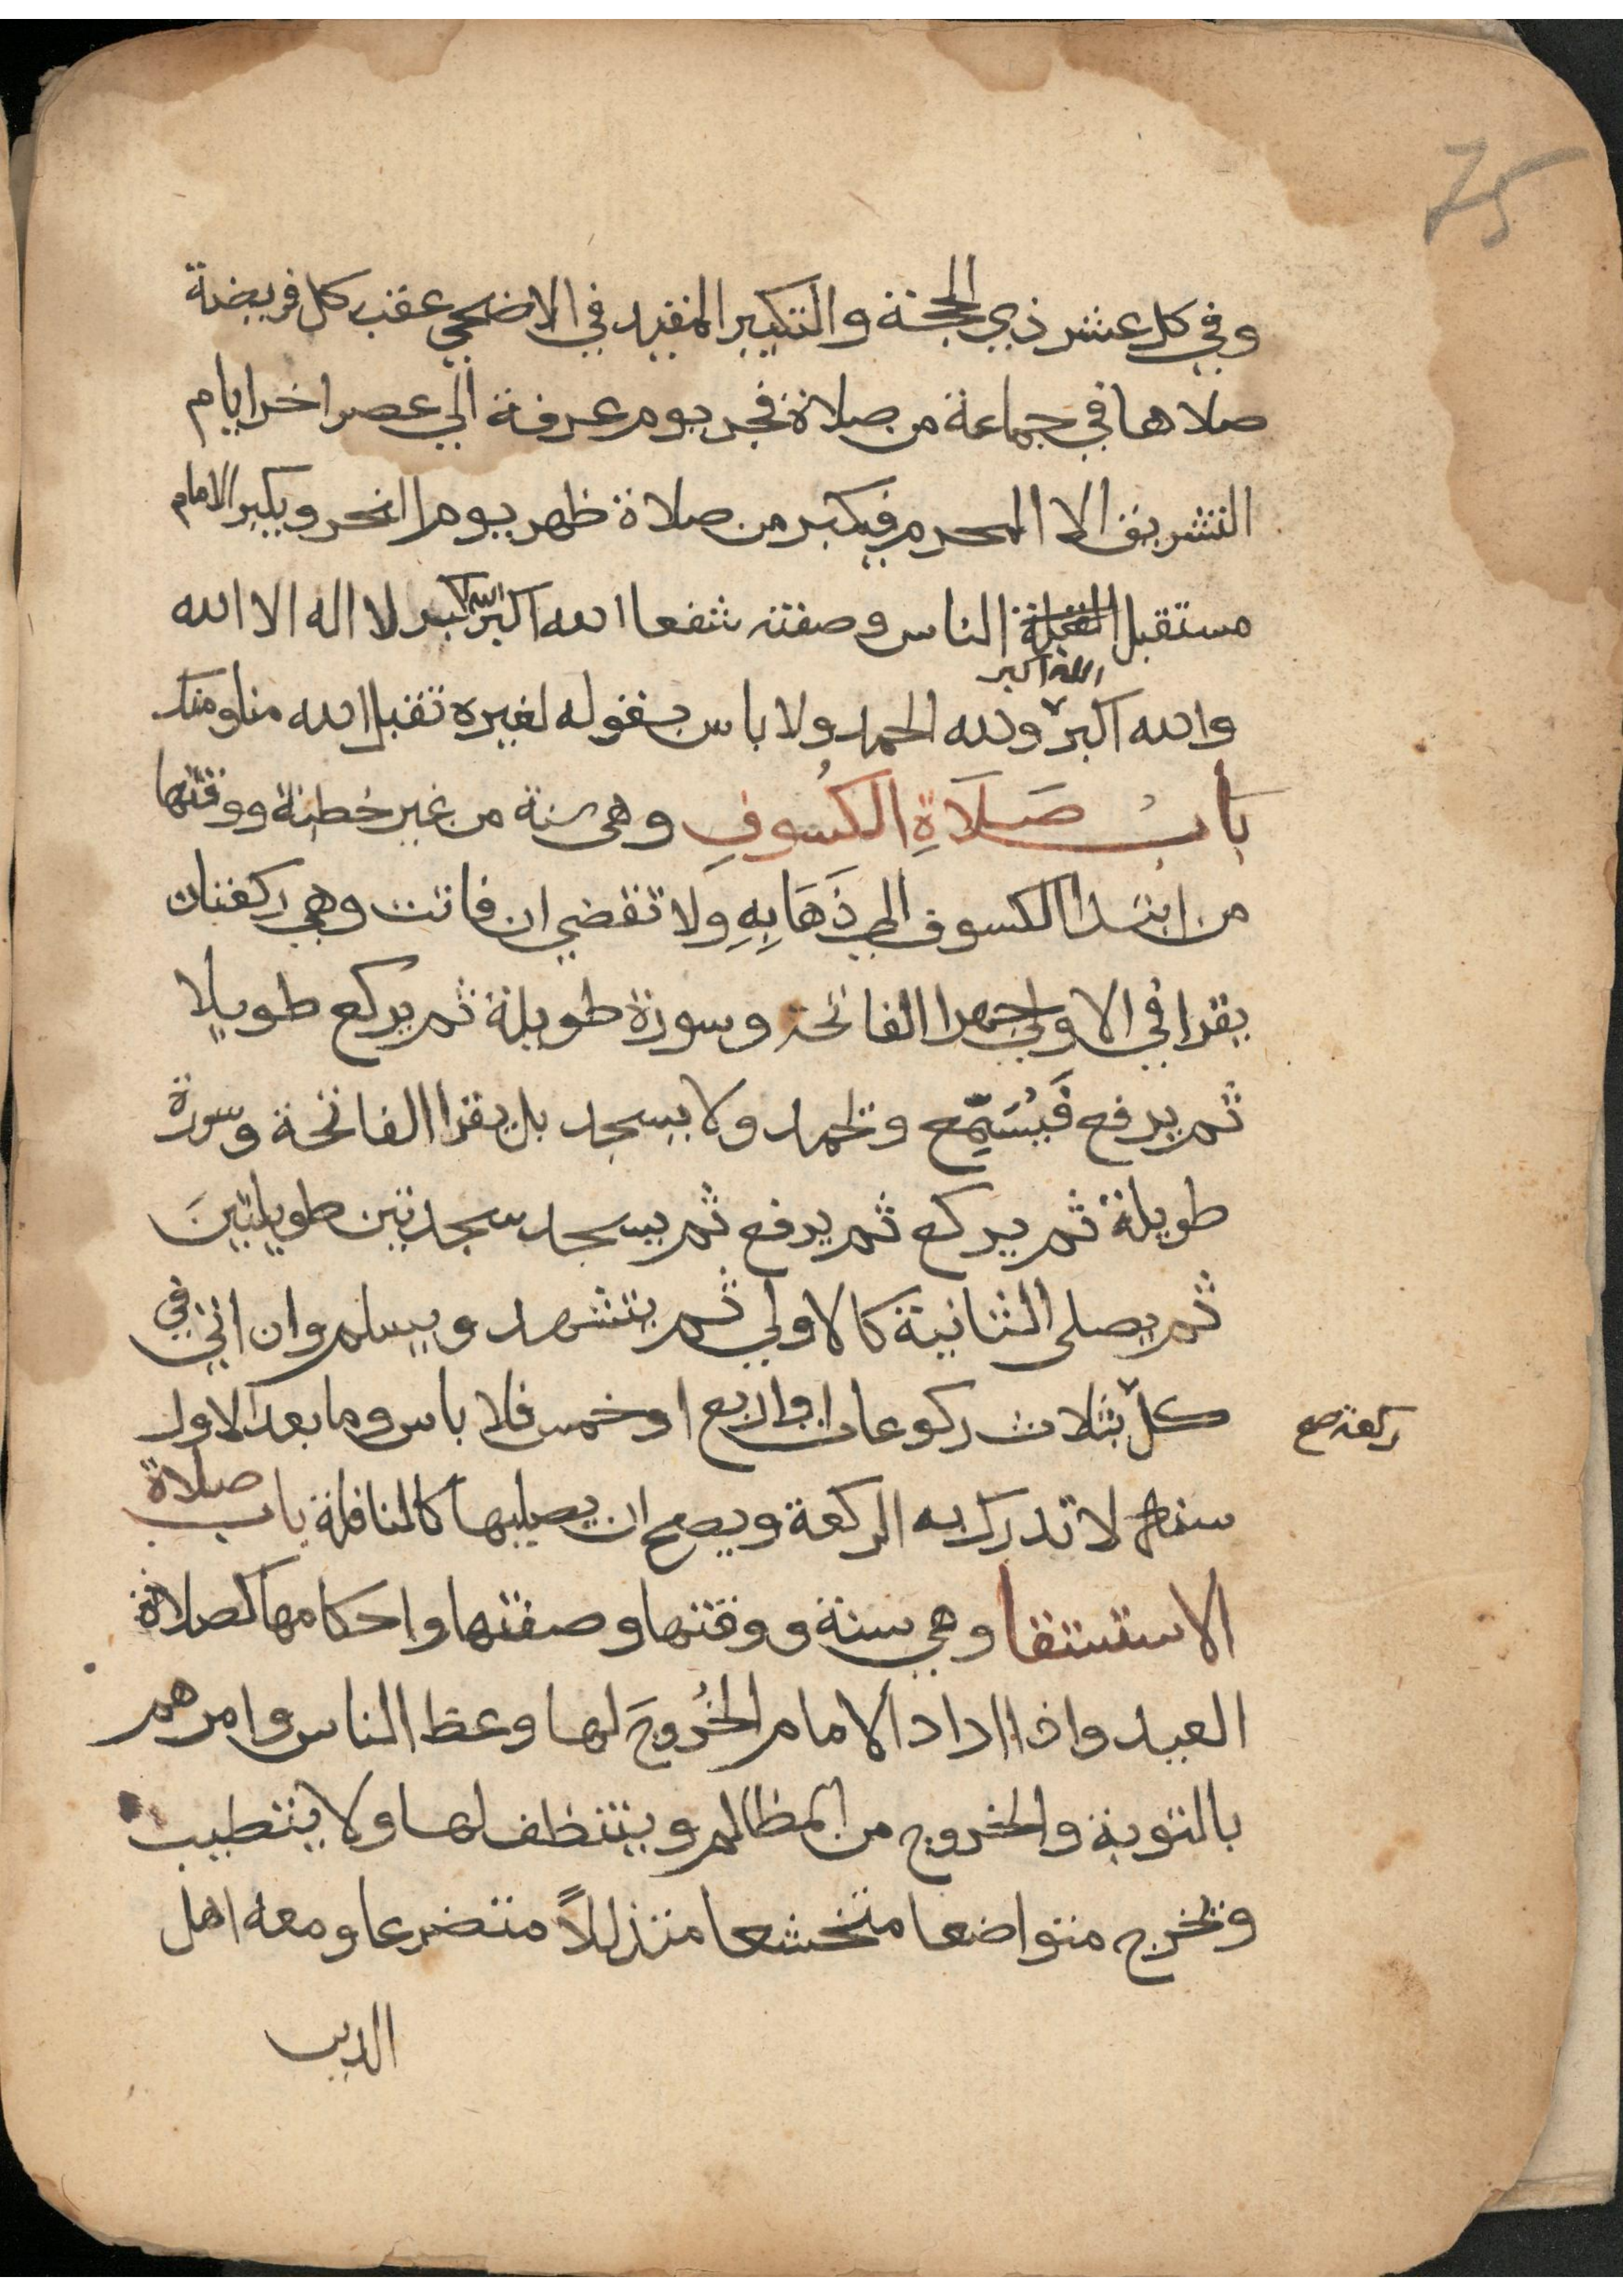 75
وفي كل عشر ذي الحجة والتكبير المقيد في الاضحي عقب كل فريضة
صلاها في جماعة من صلاة فجر يوم عرفة الي عصر اخر ايام
التشريق الا المحرم فيكبر من صلاة ظهر يوم النحر ويكبر الامام
مستقبل الناس وصفته شفعا الله اكبر الله اكبر لا اله الا الله
والله اكبر الله اكبر ولله الحمد ولا باس بقوله لغيره تقبل الله منا ومنك
بابُ صَلَاةِ الكُسُوفِ وهي سنة من غير خطبة ووقتها
من ابتدا الكسوف الي ذَهَابِهِ ولا تقضي ان فاتت وهي ركعتان
يقرا في الاولي جهرا الفاتحة وسورة طويلة ثم يركع طويلا
ثم يرفع فَيُسَمِّع ويحمد ولا يسجد بل يقرا الفاتحة وسورة
طويلة ثم يركع ثم يرفع ثم يسجد سجدتين طويلتينَ
ثم يصلى الثانية كالاولي ثم يتشهد ويسلم وان اتي في
كل بثلاث ركوعات او اربع او خمس فلا باس وما بعد الاول
ركعة صح
سنة لا تدرك به الركعة ويصح ان يصليها كالنافلة باب صلاة
الاستسقا وهي سنة ووقتها وصفتها واحكامها كصلاة
العيد واذا اراد الامام الخُروجَ لها وعظ الناس وامرهم
بالتوبة والخروج من المظالم ويتنظف لها ولا يتطيب
ويخرج متواضعا متخشعا متذللاً متضرعا ومعه اهل
الدين